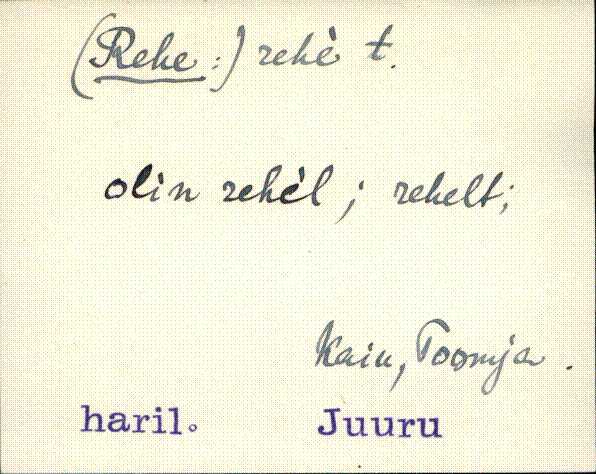 (Rehe:) rehè t.
olin rehèl; rehelt;
Kaiu, Toomja.
haril. Juuru